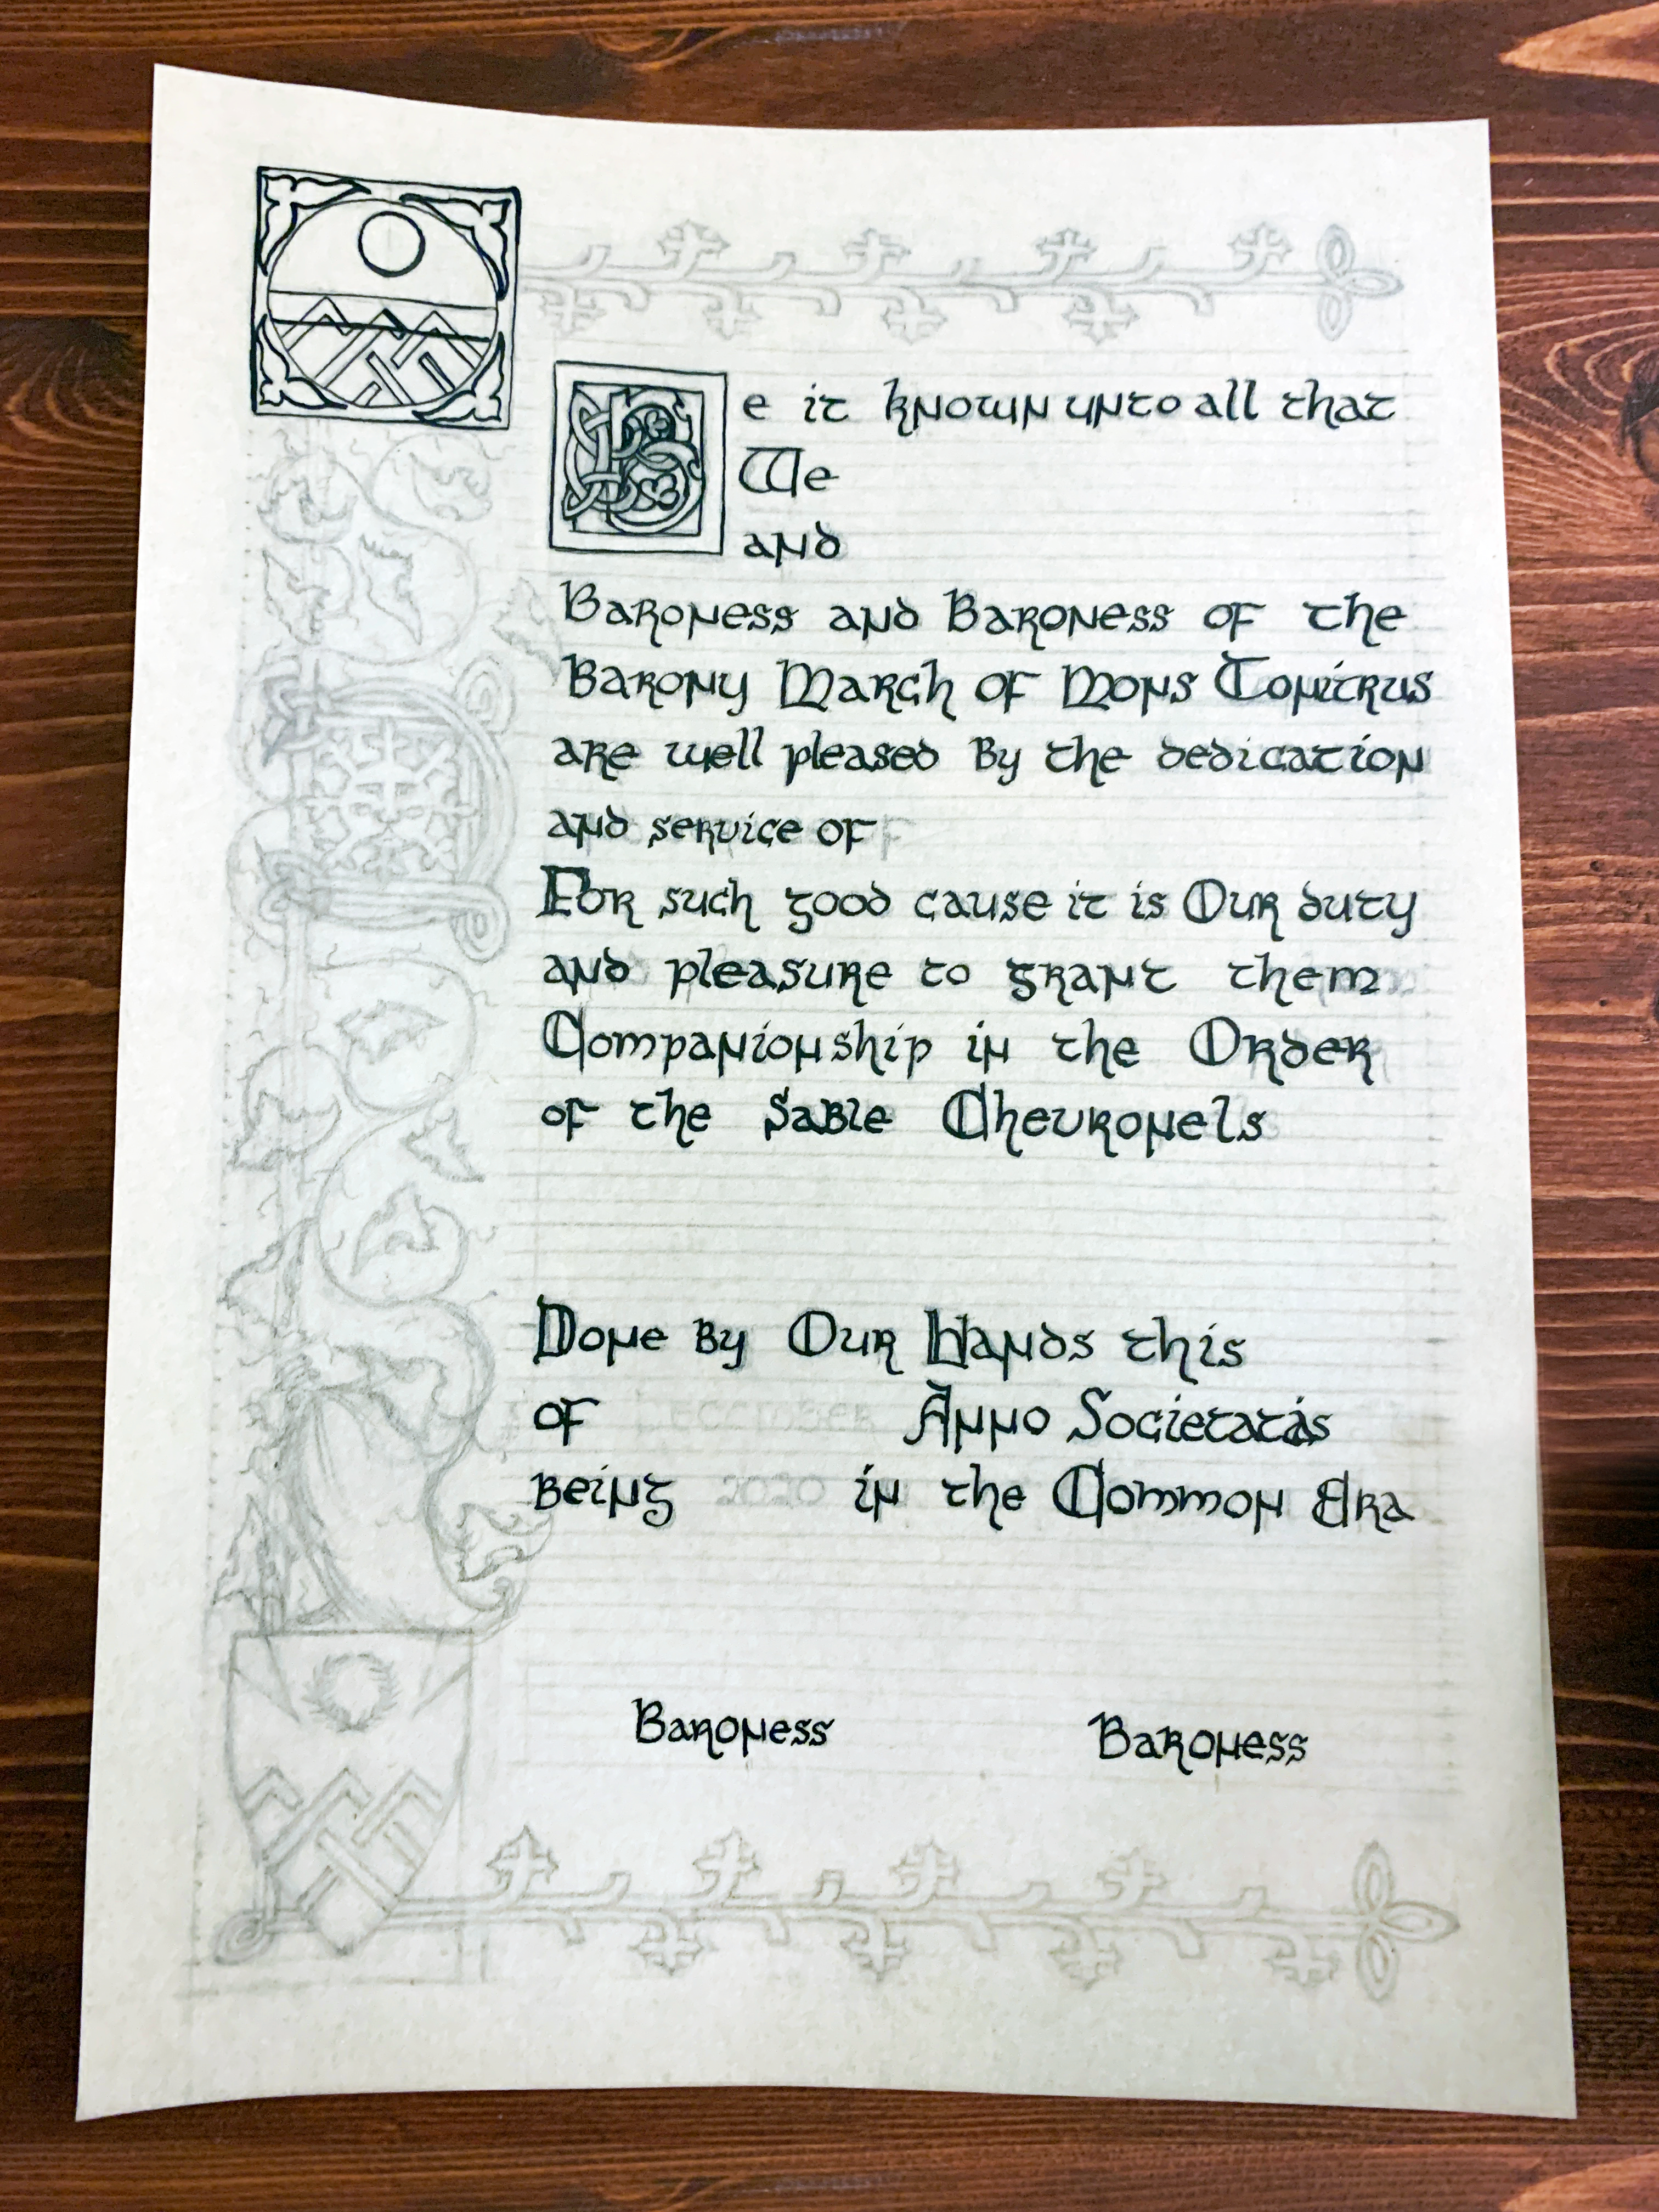 Be it known unto all that
We
and
Baroness and Baroness of the
Barony March of Mons Tonitrus
are well pleased by the dedication
and service of
For such good cause it is Our duty
and pleasure to grant them
Companionship in the Order
of the Sable Chevronels
Done by Our Hands this
of December Anno Societatis
being 2020 in the Common Era
Baroness Baroness